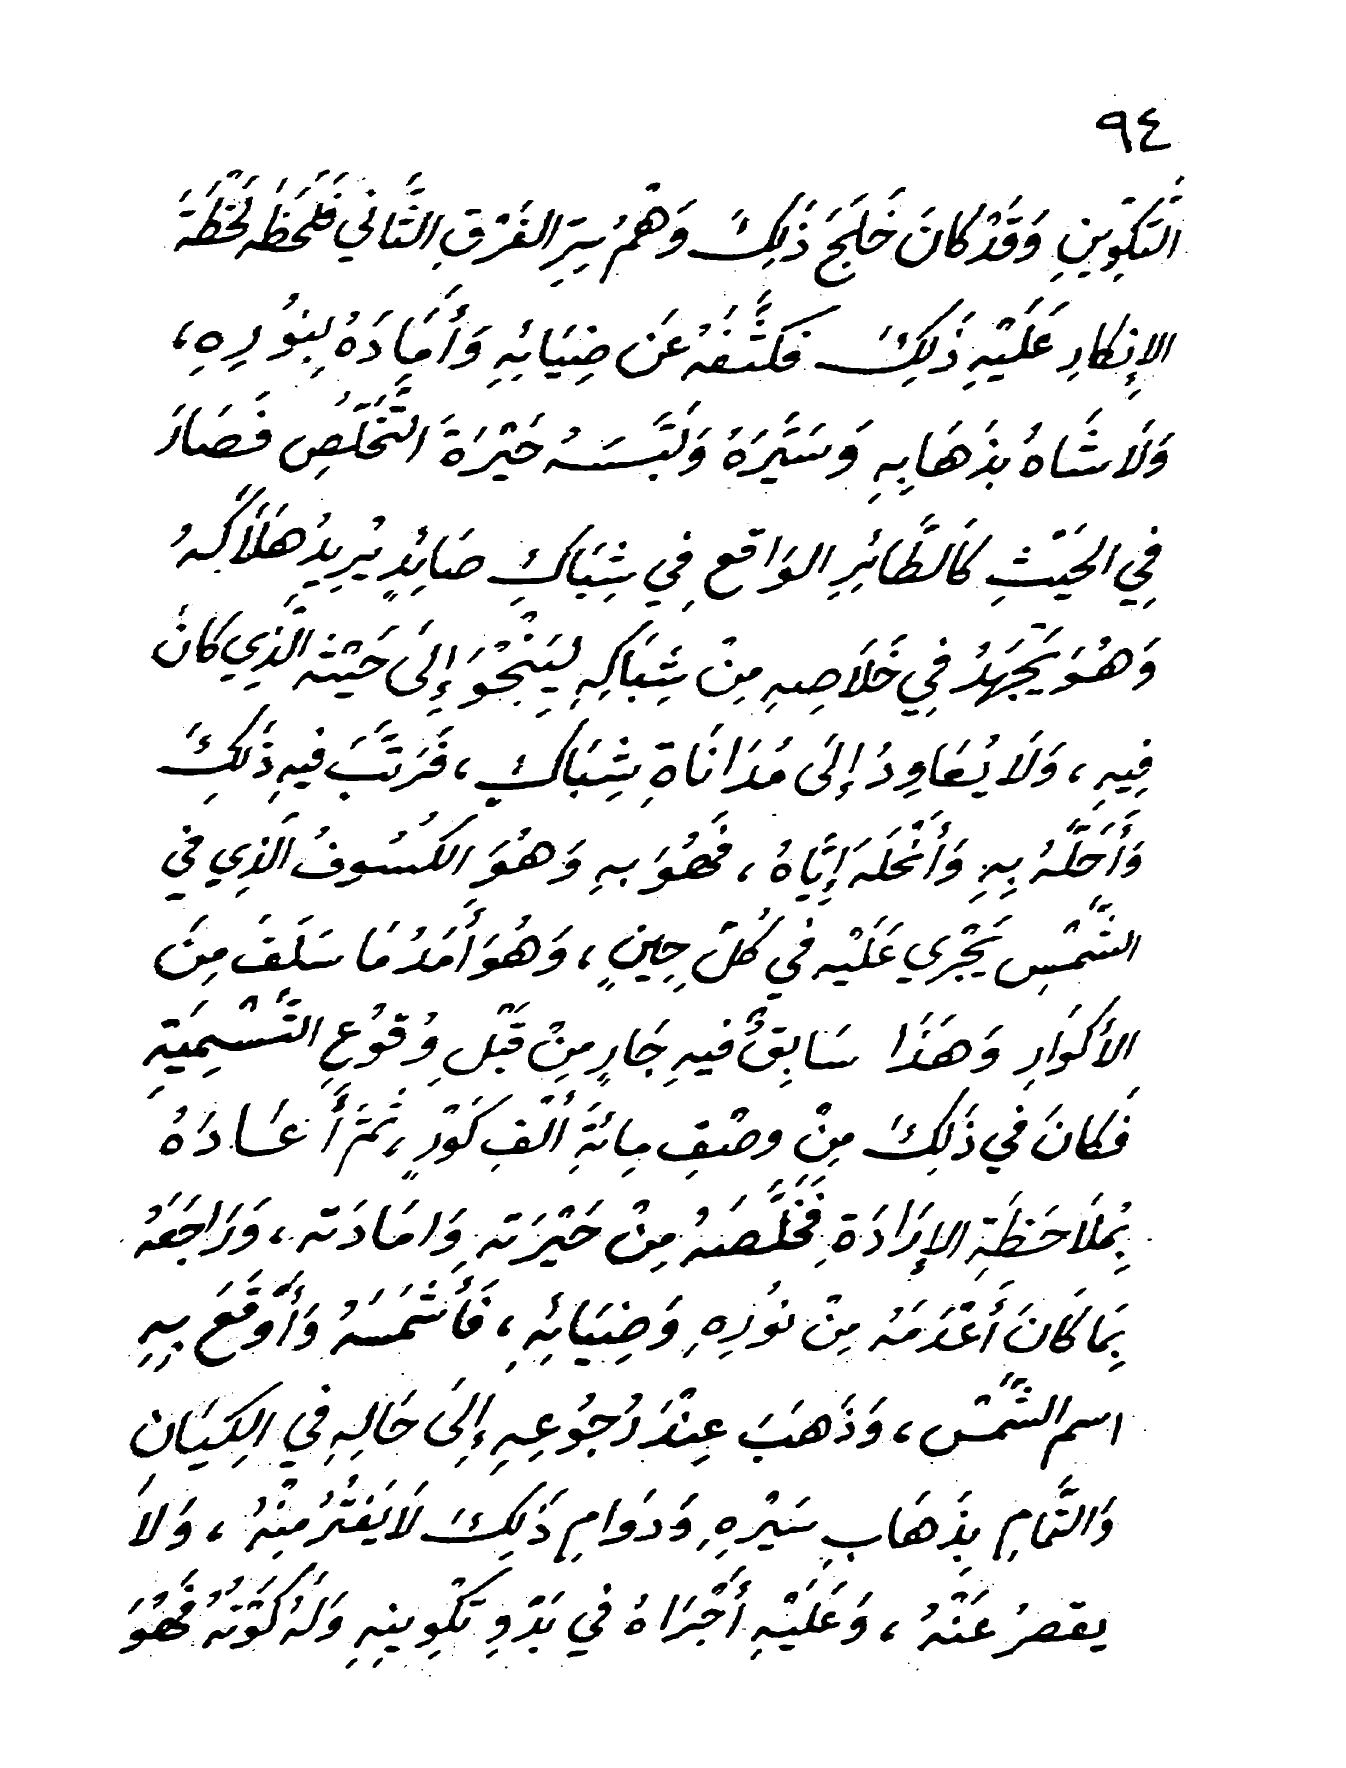 ٩٤
التَّكْوِينِ وَقَدْ كَانَ خَلَجَ ذَلِكَ وَهْمُ سِرِّ الفَرْقِ الثَّانِي فَلَحَظَهُ لَحْظَةَ
الإِنكارِ عَلَيْهِ ذَلِكَ فَكَثَّفَهُ عَن ضِيَائِهِ وَأَمَادَهُ بِنُورِهِ،
وَلَاشَاهُ بِذَهَابِهِ وَسَيَّرَهُ وَلَبَّسَهُ حَيْرَةَ التَّخَلُّصِ فَصَارَ
فِي الحَيْثِ كَالطَّائِرِ الوَاقعِ فِي شِبَاكِ صَائِدٍ يُرِيدُ هَلَاكَهُ
وَهُوَ يَجْهَدُ فِي خَلَاصِهِ مِنْ شِبَاكِهِ لِيَنْجُوَ إِلَى حَيْثه الَّذِي كَانَ
فِيهِ، وَلَا يُعَاوِدُ إِلَى مُدَانَاةِ شِبَاكٍ، فَرَتَّبَ فيهِ ذَلِكَ
وَأَحَلَّهُ بِهِ وَأَنْحَلَهُ إِيَّاهُ، فَهُوَ بهِ وَهُوَ الكُسُوفُ الَّذِي في
الشَّمْسِ يَجْرِي عَلَيْهِ في كُلِّ حِينٍ، وَهُوَ أَمَدُ مَا سَلَفَ مِنَ
الأَكْوَارِ وَهَذَا سَابِقٌ فيهِ جَارٍ مِنْ قَبْلِ وُقُوعِ التَّسْمِيَةِ
فَكَانَ في ذَلِكَ مِنْ وصْفِ مِائَةِ أَلْفِ كَوْرٍ، ثُمَّ أَعَادَهُ
بِمُلَاحَظَةِ الإِرَادَةِ فَخَلَّصَهُ مِنْ حَيْرَته وَامَادَته، وَرَاجَعَهُ
بِمَا كَانَ أَعْدَمَهُ مِنْ نُورِهِ وَضِيَائِهِ، فَأَشْمَسَهُ وَأَوْقَعَ بِهِ
اسم الشَّمْس، وَذَهَبَ عِنْدَ رُجُوعِهِ إِلَى حَالِهِ فِي الكِيَان
وَالتَّمامِ بِذَهَابِ سَيْرِهِ وَدَوَامِ ذَلِكَ لَا يَفْتُرُ مِنْهُ، وَلَا
يقصرُ عَنْهُ، وَعَلَيْهِ أَجْرَاهُ في بَدْوِ تَكْوِينِهِ وَلَهُ كَوَّنَهُ فَهُوَ